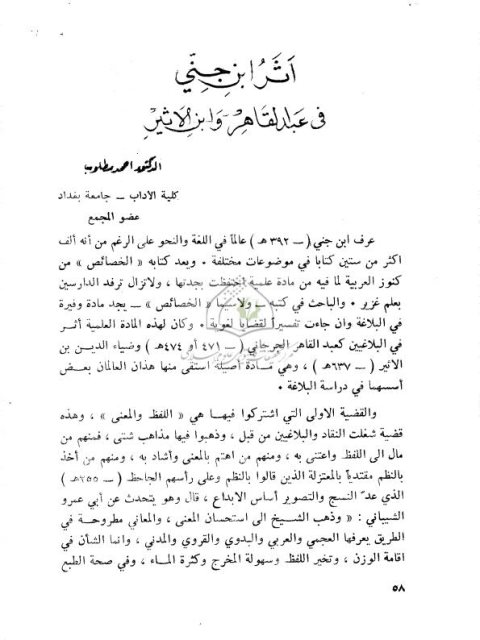 أثر ابن جني
في عبدالقاهر وابن الاثير
الدكتور احمد مطلوب
كلية الاداب ــ جامعة بغداد
عضو المجمع
عرف ابن جني (ــ ٣٩٢ هـ) عالماً في اللغة والنحو على الرغم من أنه ألف
اكثر من ستين كتابا في موضوعات مختلفة • ويعد كتابه « الخصائص » من
كنوز العربية لما فيه من مادة علمية احتفظت بجدتها ، ولاتزال ترفد الدارسين
بعلم غزير • والباحث في كتبه ــ ولاسيما « الخصائص » ــ يجد مادة وفيرة
في البلاغة وان جاءت تفسيراً لقضايا لغوية • وكان لهذه المادة العلمية أثر
في البلاغيين كعبد القاهر الجرجاني (ــ ٤٧١ أو ٤٧٤ هـ) وضياء الدين بن
الاثير (ــ ٦٣٧ هـ) ، وهي مادة أصيلة استقى منها هذان العالمان بعض
أسسهما في دراسة البلاغة •
والقضية الاولى التي اشتركوا فيها هي « اللفظ والمعنى » ، وهذه
قضية شغلت النقاد والبلاغيين من قبل ، وذهبوا فيها مذاهب شتى ، فمنهم من
مال الى اللفظ واعتنى به ، ومنهم من اهتم بالمعنى وأشاد به ، ومنهم من أخذ
بالنظم مقتدياً بالمعتزلة الذين قالوا بالنظم وعلى رأسهم الجاحظ (ــ ٢٥٥ هـ)
الذي عدّ النسج والتصوير أساس الابداع ، قال وهو يتحدث عن أبي عمرو
الشيباني : « وذهب الشيخ الى استحسان المعنى ، والمعاني مطروحة في
الطريق يعرفها العجمي والعربي والبدوي والقروي والمدني ، وانما الشأن في
اقامة الوزن ، وتخير اللفظ وسهولة المخرج وكثرة الماء ، وفي صحة الطبع
٥٨